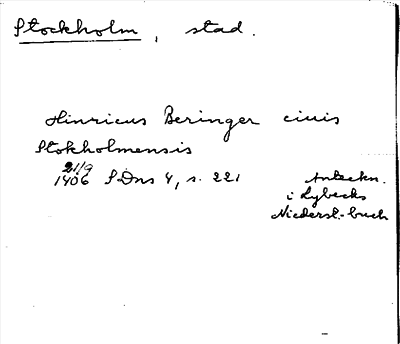 Stockholm, stad.
Hinricus Beringer ciuis
Stokholmensis
21/9
1406 SDns 4, s. 221
Anteckn.
i Lybecks
Niederst.-buch